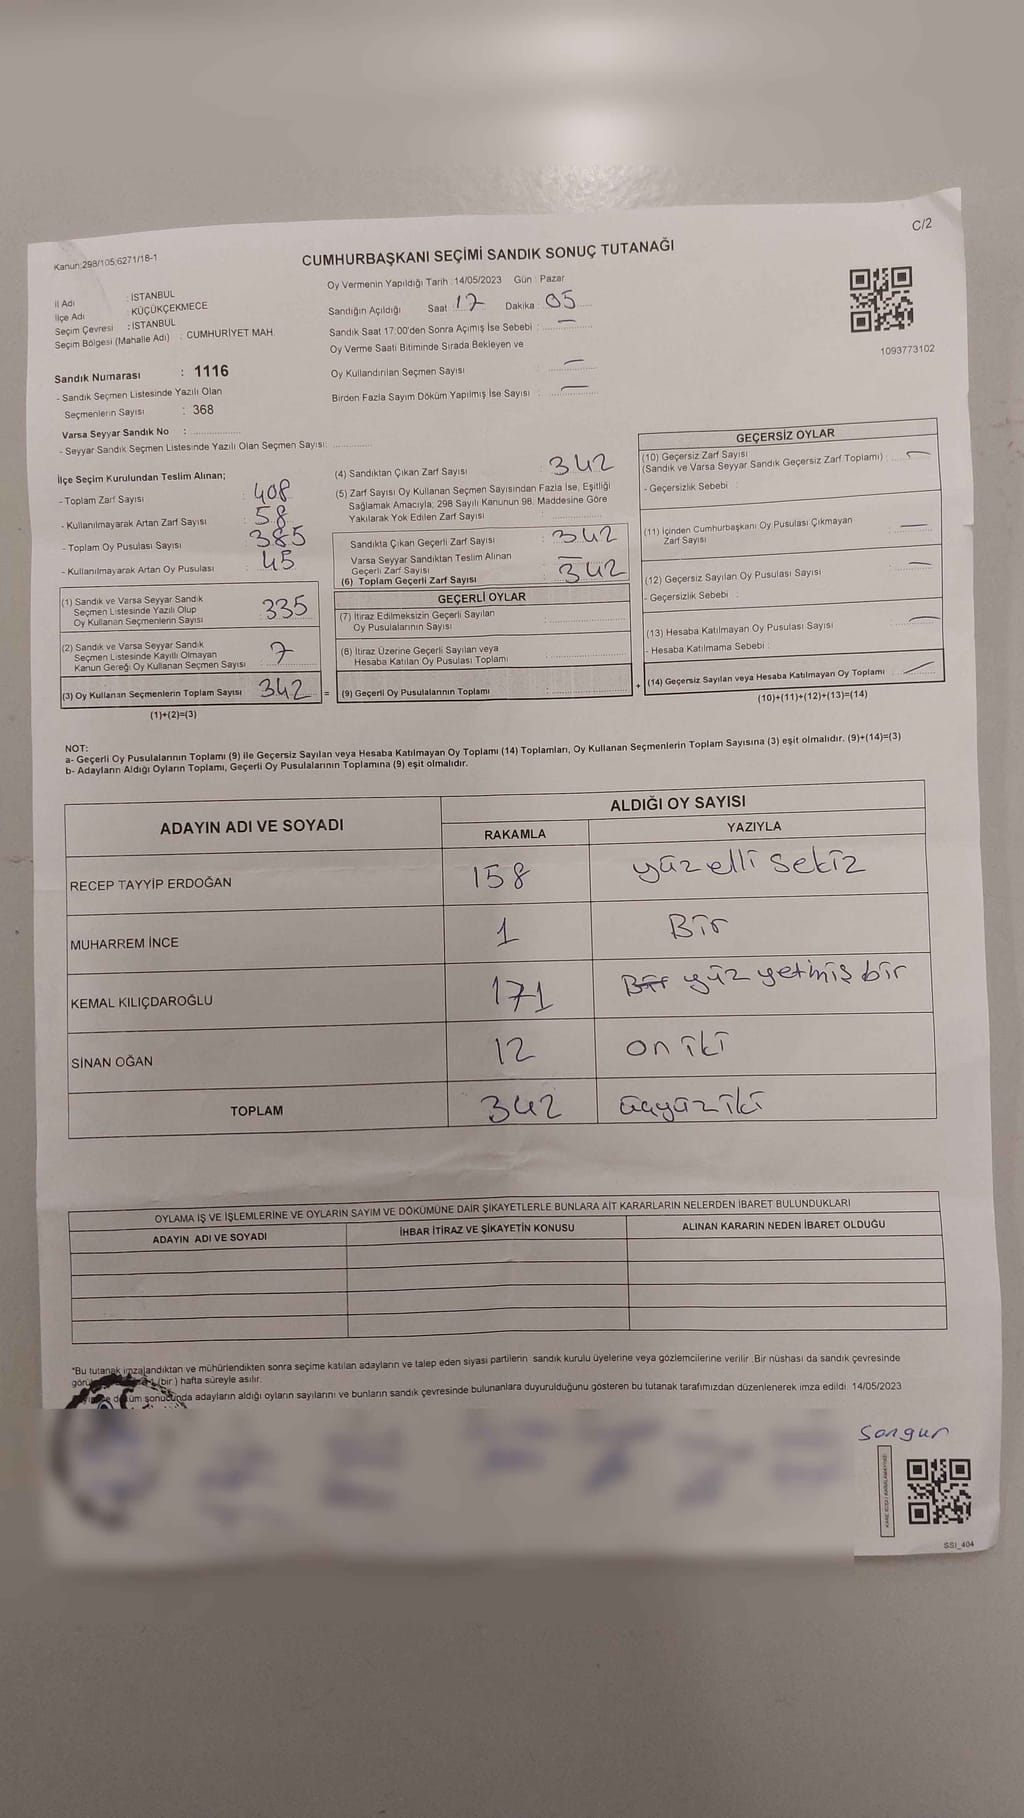 C/2
Kanun:298/105;6271/18-1
CUMHURBAŞKANI SEÇİMİ SANDIK SONUÇ TUTANAĞI
İl Adı : İSTANBUL
İlçe Adı : KÜÇÜKÇEKMECE
Seçim Çevresi : İSTANBUL
Seçim Bölgesi (Mahalle Adı) : CUMHURİYET MAH.
Sandık Numarası : 1116
- Sandık Seçmen Listesinde Yazılı Olan
Seçmenlerin Sayısı : 368
Varsa Seyyar Sandık No :
- Seyyar Sandık Seçmen Listesinde Yazılı Olan Seçmen Sayısı:
Oy Vermenin Yapıldığı Tarih : 14/05/2023 Gün : Pazar
Sandığın Açıldığı Saat 17 Dakika : 05
Sandık Saat 17:00'den Sonra Açımış İse Sebebi : —
Oy Verme Saati Bitiminde Sırada Bekleyen ve
Oy Kullandırılan Seçmen Sayısı : —
Birden Fazla Sayım Döküm Yapılmış İse Sayısı : —
1093773102
İlçe Seçim Kurulundan Teslim Alınan;
- Toplam Zarf Sayısı : 408
- Kullanılmayarak Artan Zarf Sayısı : 58
- Toplam Oy Pusulası Sayısı : 385
- Kullanılmayarak Artan Oy Pusulası : 45
(1) Sandık ve Varsa Seyyar Sandık
Seçmen Listesinde Yazılı Olup
Oy Kullanan Seçmenlerin Sayısı : 335
(2) Sandık ve Varsa Seyyar Sandık
Seçmen Listesinde Kayıtlı Olmayan
Kanun Gereği Oy Kullanan Seçmen Sayısı : 7
(3) Oy Kullanan Seçmenlerin Toplam Sayısı 342 =
(1)+(2)=(3)
(4) Sandıktan Çıkan Zarf Sayısı : 342
(5) Zarf Sayısı Oy Kullanan Seçmen Sayısından Fazla İse, Eşitliği
Sağlamak Amacıyla, 298 Sayılı Kanunun 98. Maddesine Göre
Yakılarak Yok Edilen Zarf Sayısı :
Sandıkta Çıkan Geçerli Zarf Sayısı : 342
Varsa Seyyar Sandıktan Teslim Alınan
Geçerli Zarf Sayısı : —
(6) Toplam Geçerli Zarf Sayısı : 342
GEÇERLİ OYLAR
(7) İtiraz Edilmeksizin Geçerli Sayılan
Oy Pusulalarının Sayısı :
(8) İtiraz Üzerine Geçerli Sayılan veya
Hesaba Katılan Oy Pusulası Toplamı :
(9) Geçerli Oy Pusulalarının Toplamı : +
GEÇERSİZ OYLAR
(10) Geçersiz Zarf Sayısı
(Sandık ve Varsa Seyyar Sandık Geçersiz Zarf Toplamı) : —
- Geçersizlik Sebebi :
(11) İçinden Cumhurbaşkanı Oy Pusulası Çıkmayan
Zarf Sayısı : —
(12) Geçersiz Sayılan Oy Pusulası Sayısı : —
- Geçersizlik Sebebi :
(13) Hesaba Katılmayan Oy Pusulası Sayısı : —
- Hesaba Katılmama Sebebi :
(14) Geçersiz Sayılan veya Hesaba Katılmayan Oy Toplamı : —
(10)+(11)+(12)+(13)=(14)
NOT:
a- Geçerli Oy Pusulalarının Toplamı (9) ile Geçersiz Sayılan veya Hesaba Katılmayan Oy Toplamı (14) Toplamları, Oy Kullanan Seçmenlerin Toplam Sayısına (3) eşit olmalıdır. (9)+(14)=(3)
b- Adayların Aldığı Oyların Toplamı, Geçerli Oy Pusulalarının Toplamına (9) eşit olmalıdır.
ADAYIN ADI VE SOYADI ALDIĞI OY SAYISI
RAKAMLA YAZIYLA
RECEP TAYYİP ERDOĞAN 158 yüz elli sekiz
MUHARREM İNCE 1 Bir
KEMAL KILIÇDAROĞLU 171 Bir yüz yetmiş bir
SİNAN OĞAN 12 on iki
TOPLAM 342 üçyüz iki
OYLAMA İŞ VE İŞLEMLERİNE VE OYLARIN SAYIM VE DÖKÜMÜNE DAİR ŞİKAYETLERLE BUNLARA AİT KARARLARIN NELERDEN İBARET BULUNDUKLARI
ADAYIN ADI VE SOYADI İHBAR İTİRAZ VE ŞİKAYETİN KONUSU ALINAN KARARIN NEDEN İBARET OLDUĞU
*Bu tutanak imzalandıktan ve mühürlendikten sonra seçime katılan adayların ve talep eden siyasi partilerin sandık kurulu üyelerine veya gözlemcilerine verilir. Bir nüshası da sandık çevresinde
(bir) hafta süreyle asılır.
sonucunda adayların aldığı oyların sayılarını ve bunların sandık çevresinde bulunanlara duyurulduğunu gösteren bu tutanak tarafımızdan düzenlenerek imza edildi. 14/05/2023
Songur
KARE KODU KARALAMAYINIZ
SSI_404